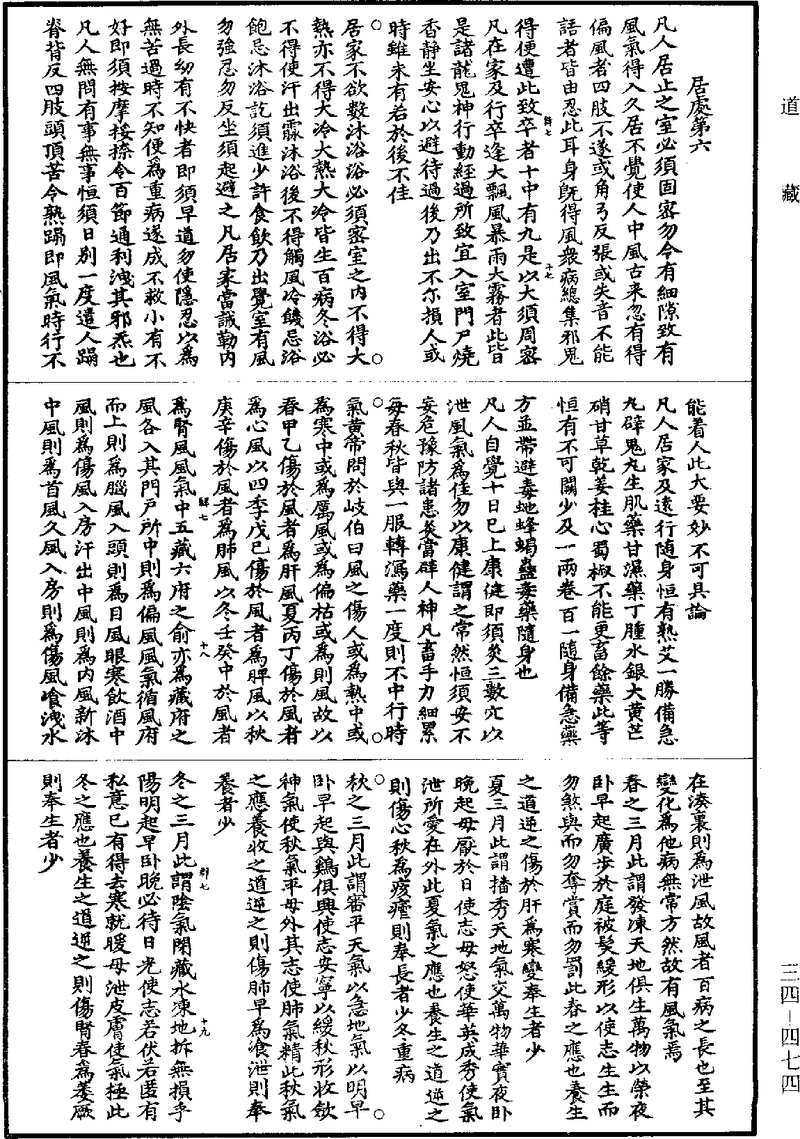 道藏
居處第六
凡人居止之室必須固密勿令有細隙致有
風氣得入久居不覺使人中風古來忽有得
偏風者四肢不遂或角弓反張或失音不能
語者皆由忍此耳身既得風衆病總集邪鬼
得便遭此致卒者十中有九是以大須周密
凡在家及行卒逢大飄風暴雨大霧者此皆
是諸龍鬼神行動經過所致宜入室門戶燒
香靜坐安心以避待過後乃出不尒損人或
時雖未有若於後不佳
居家不欲數沐浴浴必須密室之內不得大
熱亦不得大冷大熱大冷皆生百病冬浴必
不得使汗出霢沐浴後不得觸風冷饑忌浴
飽忌沐浴訖須進少許食飲乃出覺室有風
勿強忍勿反坐須起避之凡居家常誡勒內
外長幼有不快者即須早道勿使隱忍以爲
無苦過時不知便爲重病遂成不救小有不
好即須按摩挼捺令百節通利洩其邪炁也
凡人無問有事無事恒須日別一度遣人蹋
脊背反四肢頭頂苦令熟蹋即風氣時行不
能着人此大要妙不可具論
凡人居家及遠行隨身恒有熟艾一勝備急
丸辟鬼丸生肌藥甘濕藥丁腫水銀大黃芒
硝甘草乾姜桂心蜀椒不能更畜餘藥此等
恒有不可闕少及一兩卷百一隨身備急藥
方並帶避毒虵蜂蝎蠱毒藥隨身也
凡人自覺十日已上康健即須灸三數穴以
泄風氣爲佳勿以康健謂之常然恒須安不
妄危豫防諸患灸當辟人神凡畜手力細累
每春秋皆與一服轉瀉藥一度則不中行時
氣黃帝問於岐伯曰風之傷人或爲熱中或
爲寒中或爲厲風或爲偏枯或爲則風故以
春甲乙傷於風者爲肝風夏丙丁傷於風者
爲心風以四季戊己傷於風者爲脾風以秋
庚辛傷於風者爲肺風以冬壬癸中於風者
爲腎風風氣中五藏六府之俞亦爲藏府之
風各入其門戶所中則爲偏風風氣循風府
而上則爲腦風入頭則爲目風眼寒飲酒中
風則爲傷風入房汗出中風則爲內風新沐
中風則爲首風久風入房則爲傷風飡洩水
在湊裏則爲泄風故風者百病之長也至其
變化爲他病無常方然故有風氣焉
春之三月此謂發涷天地俱生萬物以榮夜
卧早起廣步於庭被髮緩形以使志生生而
勿煞與而勿奪賞而勿罰此春之應也養生
之道逆之傷於肝爲寒變奉生者少
夏三月此謂播秀天地氣交萬物華實夜卧
晚起毋厭於日使志毋怒使華英成秀使氣
泄所愛在外此夏氣之應也養生之道逆之
則傷心秋爲痎瘧則奉長者少冬重病
秋之三月此謂審平天氣以急地氣以明早
卧早起與鷄俱興使志安寧以緩秋形收歛
神氣使秋氣平毋外其志使肺氣精此秋氣
之應養收之道逆之則傷肺早爲飡泄則奉
養者少
冬之三月此謂陰氣閉藏水凍地拆無損乎
陽明起早卧晚必待日光使志若伏若匿有
私意已有得去寒就暖毋泄皮膚使氣極此
冬之應也養生之道逆之則傷腎春爲萎厥
則奉生者少
三四—四七四